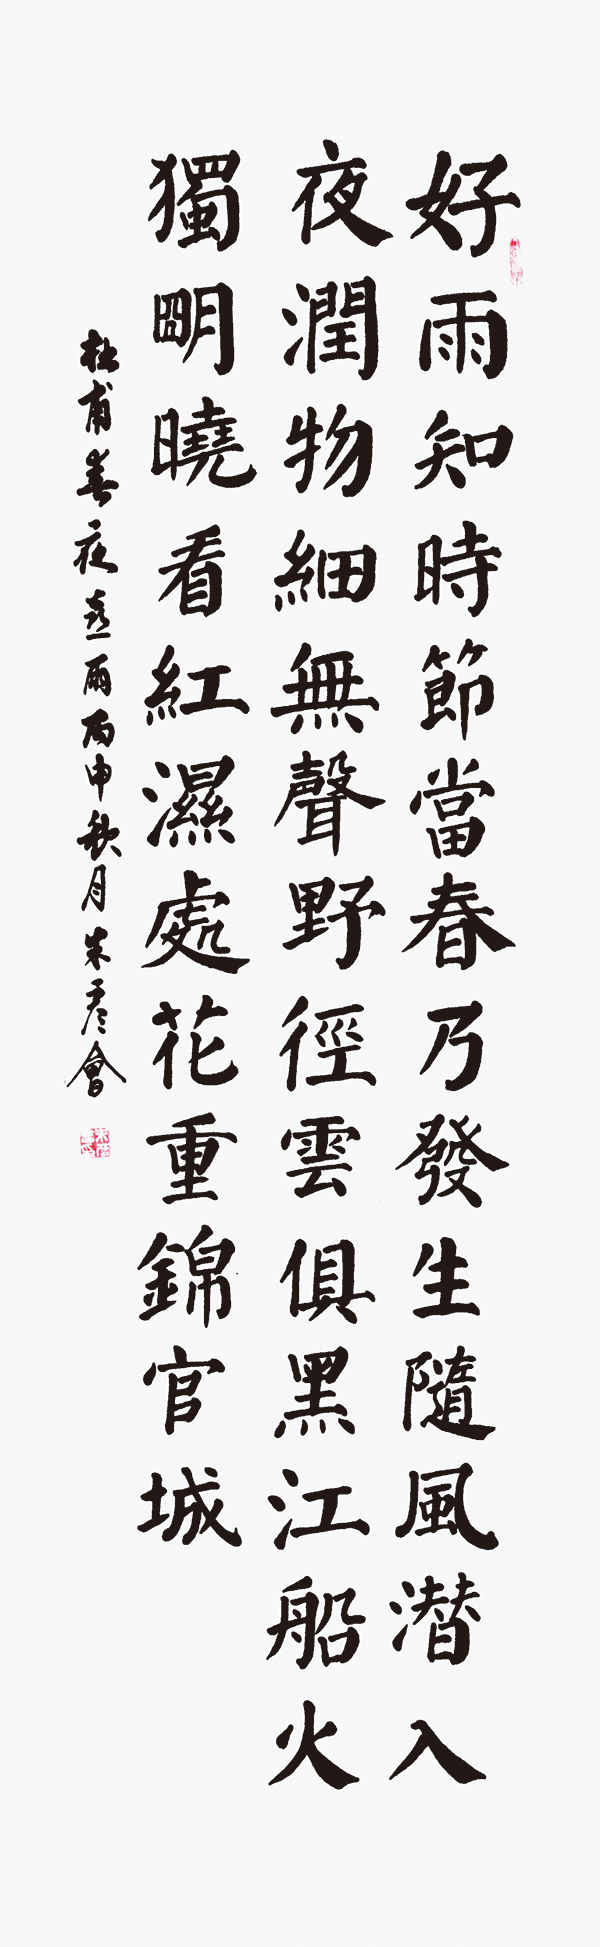 好雨知時節當春乃發生隨風潛入
夜潤物細無聲野徑雲俱黑江船火
獨明曉看紅濕處花重錦官城
杜甫春夜喜雨丙申秋月朱彦會